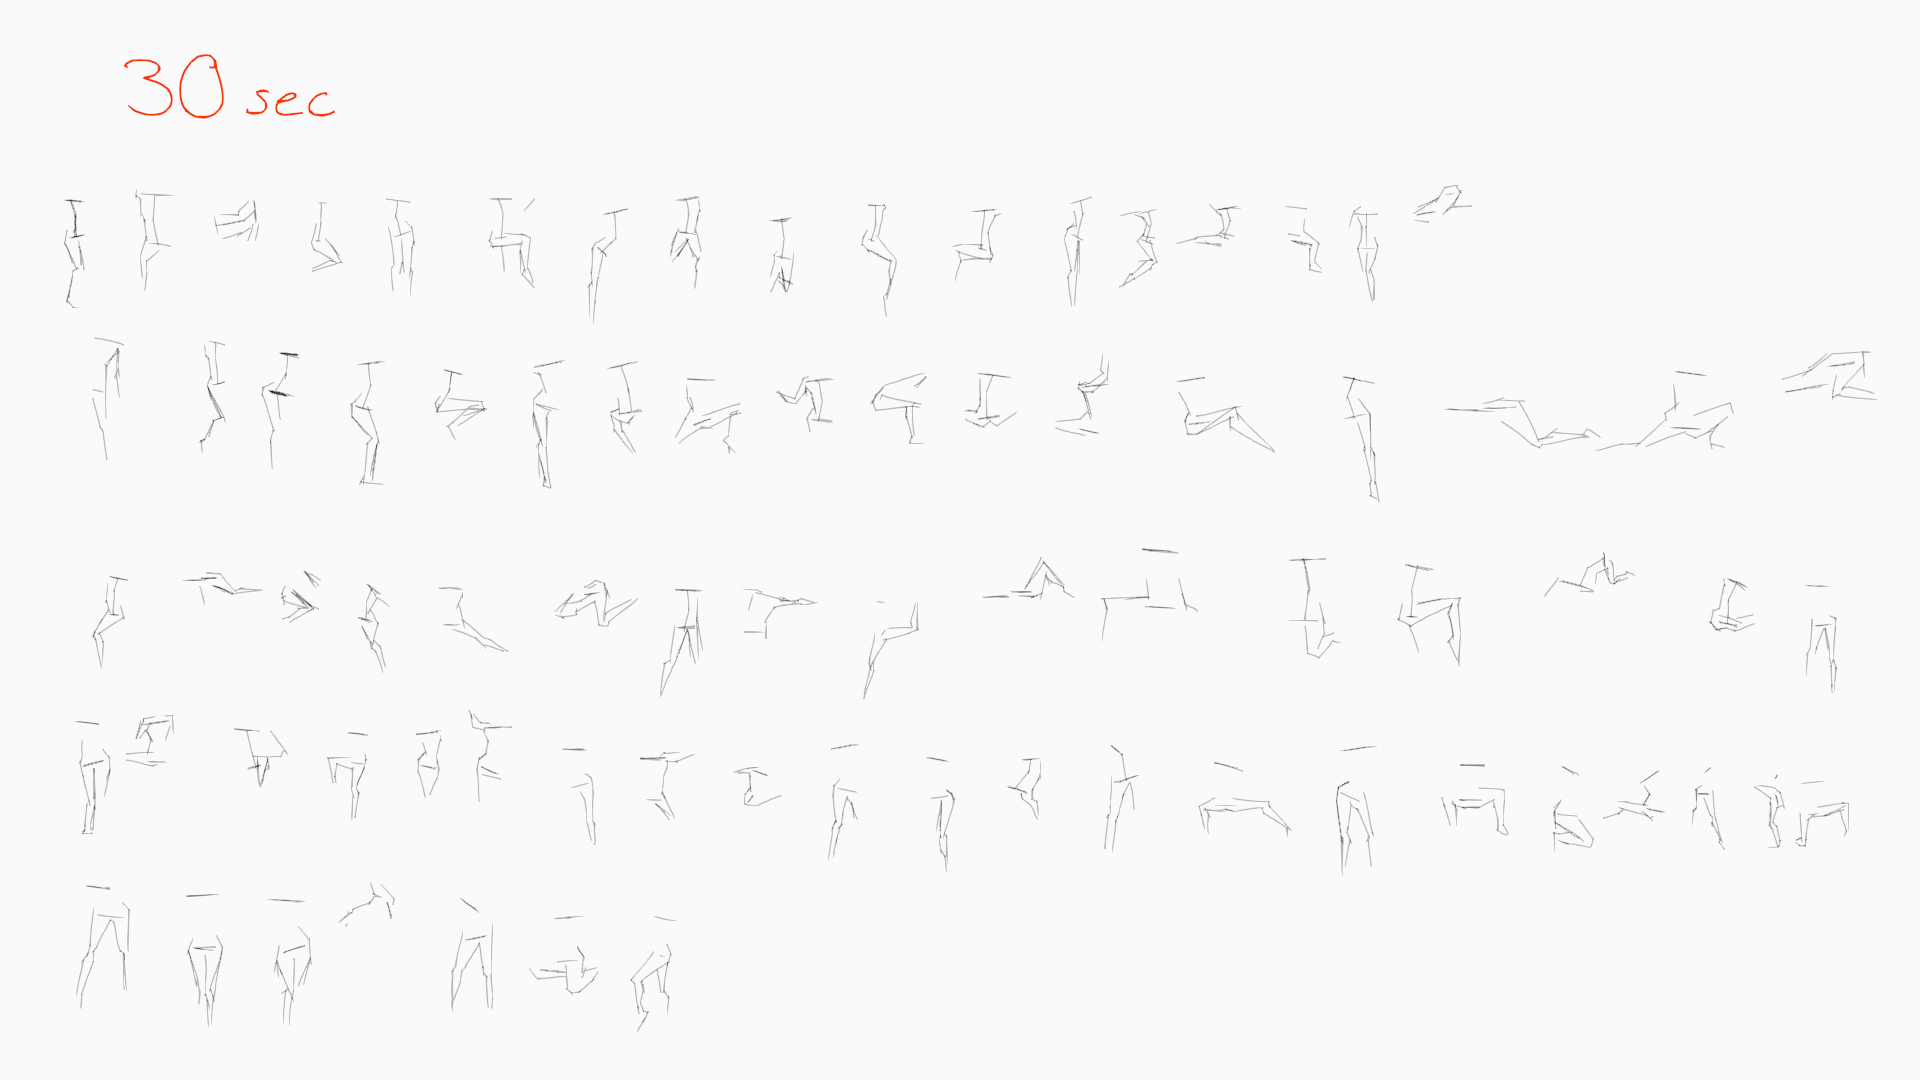 30 sec